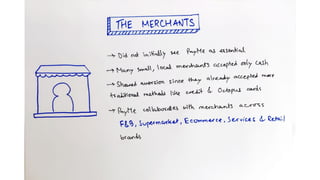 THE MERCHANTS
→ Did not initially see PayMe as essential
→ Many small, local merchants accepted only cash
→ Showed aversion since they already accepted more
traditional methods like credit & Octopus cards
→ PayMe collaborates with merchants across
F&B, Supermarket, Ecommerce, Services & Retail
brands